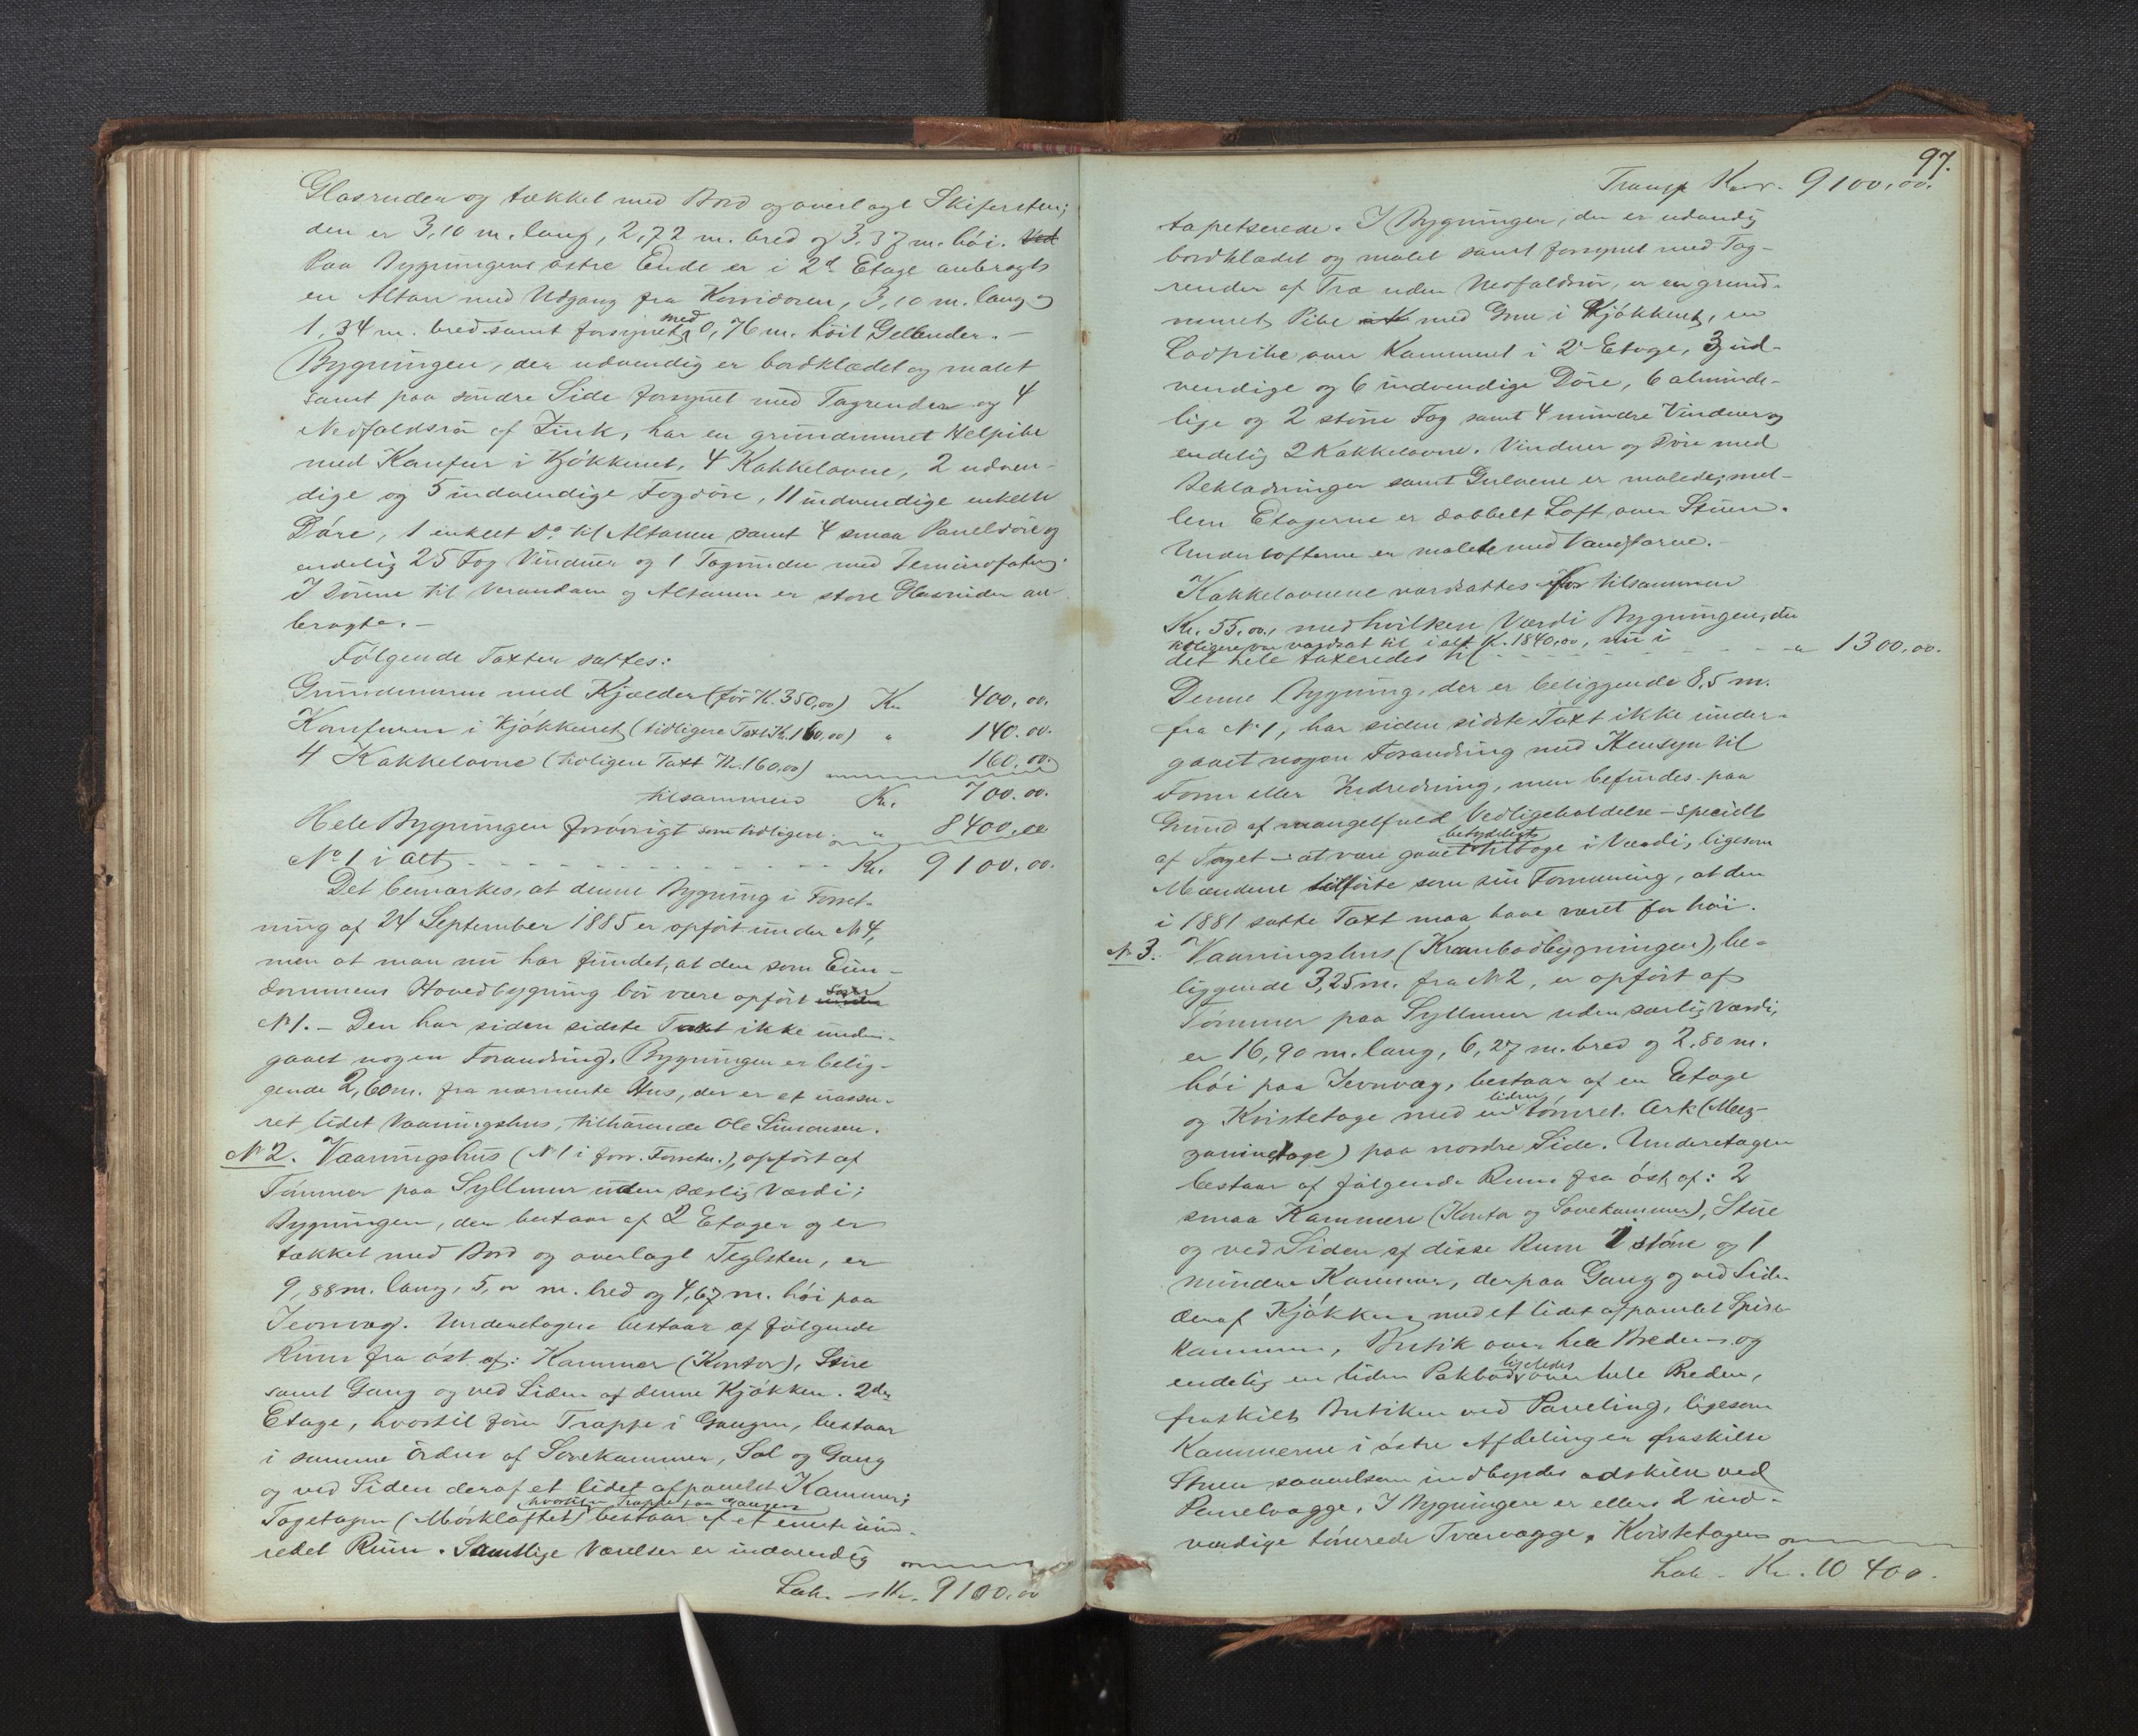 Glasruder og tækket med Bord og overlagt Skifersten;
den er 3,10 m. lang, 2,72 m. bred og 3,37 m. høi. Ved
Paa Bygningens østre Ende er i 2d Etage anbragt
en Altan med Udgang fra Korridoren, 3,10 m. lang og
1,34 m. bred samt forsynet med 0,76 m. høit Gelænder. –
Bygningen, der udvendig er bordklædet og malet
samt paa søndre Side forsynet med Tagrender og 4
Nedfaldsrør af Zink, har en grundmuret Helpibe
med Komfur i Kjøkkenet, 4 Kakkelovne, 2 udven-
dige og 5 indvendige Fagdøre, 11 indvendige enkelte
Døre, 1 enkelt Do til Altanen samt 4 smaa Paneldøre og
endelig 25 Fag Vinduer og 1 Tagvindu med Jernindfatning.
I Dørene til Verandaen og Altanen er store Glasruder an-
bragte. –
Følgende Taxter sattes:
Grundmuren med Kjælder (før Kr. 350,00) Kr. 400,00.
Komfuren i Kjøkkenet (tidligere Taxt Kr. 160,00) " 140.00.
4 Kakkelovne (tidligere Taxt Kr. 160,00) 160.00.
tilsammen Kr. 700.00.
Hele Bygningen forøvrigt som tidligere " 8400,00
No 1 i alt - - - Kr. 9100.00.
Det bemærkes, at denne Bygning i Forret-
ning af 24 September 1885 er opført under No 4,
men at man nu har fundet, at den som Eien-
dommens Hovedbygning bør være opført under som
No 1. – Den har siden sidste Taxt ikke under-
gaaet nogen Forandring. Bygningen er belig-
gende 2,60 m. fra nærmeste Hus, der er et uassu-
ret lidet Vaaningshus, tilhørende Ole Simonsen.
No 2. Vaaningshus (No 1 i forr. Forretn.), opført af
Tømmer paa Syllmur uden særlig Værdi;
Bygningen, der bestaar af 2 Etager og er
tækket med Bord og overlagt Teglsten, er
9,88 m. lang, 5, m. bred og 4,67 m. høi paa
Jevnvæg. Underetagen bestaar af følgende
Rum fra øst af: Kammer (Kontor), Stue
samt Gang og ved Siden af denne Kjøkken. 2den
Etage, hvortil fører Trappe i Gangen, bestaar
i samme Orden af Sovekammer, Sal og Gang
og ved Siden deraf et lidet afpanelet Kammer;
hvortil Trappe fra Gangen
Tagetagen (Mørkloftet) bestaar af et eneste uind-
redet Rum. Samtlige Værelser er indvendig
Lat. Kr. 9100,00
97.
Transp. Kr. 9100,00.
tapetserede. I Bygningen, der er udvendig
bordklædet og malet samt forsynet med Tag-
render af Træ uden Nedfaldsrør, er en grund-
muret Pibe med Grue i Kjøkkenet, en
Lodpibe over Kammeret i 2d Etage, 3 ud-
vendige og 6 indvendige Døre, 6 alminde-
lige og 2 større Fag samt 4 mindre Vinduer og
endelig 2 Kakkelovne. Vinduer og Døre med
Beklædninger samt Gulvene er malede; mel-
lem Etagerne er dobbelt Loft over Stuen.
Underlofterne er malede med Vandfarve. –
Kakkelovnene værdsattes for tilsammen
Kr. 55.00, med hvilken Værdi Bygningen, der
tidligere var værdsat til i alt Kr. 1840,00, nu i
det hele taxeredes til - - - " 1300,00.
Denne Bygning, der er beliggende 8,5 m.
fra No 1, har siden sidste Taxt ikke under-
gaaet nogen Forandring med Hensyn til
Form eller Indredning, men befindes paa
Grund af mangelfuld Vedligeholdelse – specielt
af Taget – at være gaaet betydeligt tilbage i Værdi, ligesom
Mændene tilførte som sin Formening, at den
i 1881 satte Taxt maa have været for høi.
No 3. Vaaningshus (Krambodbygningen), be-
liggende 3,25 m. fra No 2, er opført af
Tømmer paa Syllmur uden særlig Værdi,
er 16,90 m. lang, 6,27 m. bred og 2,80 m.
høi paa Jevnvæg, bestaar af en Etage
og Kvistetage med en liden tømret Ark (Mez-
zaninetage) paa nordre Side. Underetagen
bestaar af følgende Rum fra øst af: 2
smaa Kammere (Kontor og Sovekammer), Stue
og ved Siden af disse Rum 1 større og 1
mindre Kammer, derpaa Gang og ved Siden
deraf Kjøkken med et lidet afpanelet Spise-
kammer, Butik over hele Breden og
endelig en liden Pakbod ligeledes over hele Breden,
fraskilt Butiken ved Paneling, ligesom
Kammerne i østre Afdeling er fraskilte
Stuen saavelsom indbyrdes adskilte ved
Panelvægge. I Bygningen er ellers 2 ind-
vendige tømrede Tværvægge. Kvistetagen
Lat. Kr. 10 400.